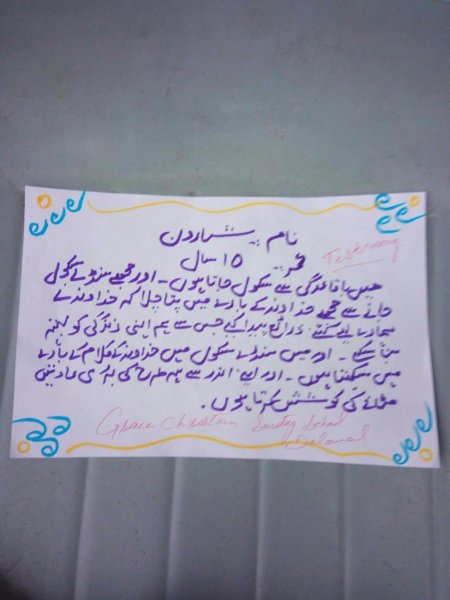 نام :- شارون
Testimony
عمر :- 15 سال
میں باقاعدگی سے سکول جاتا ہوں - اور مجھے سنڈے سکول
جانے سے مجھے خداوند کے بارے میں پتا چلا کہ خداوند نے
ہمارے لیے کتنے ذرائع پیدا کیے جس سے ہم اپنی زندگی کو بہتر
بنا سکے - اور میں سنڈے سکول میں خداوند کے کلام کے بارے
میں سیکھتا ہوں - اور اپنے اندر سے ہر طرح کی بُری عادتیں
کی کوشش کرتا ہوں .
Grace Christian Sunday School
Dalowal